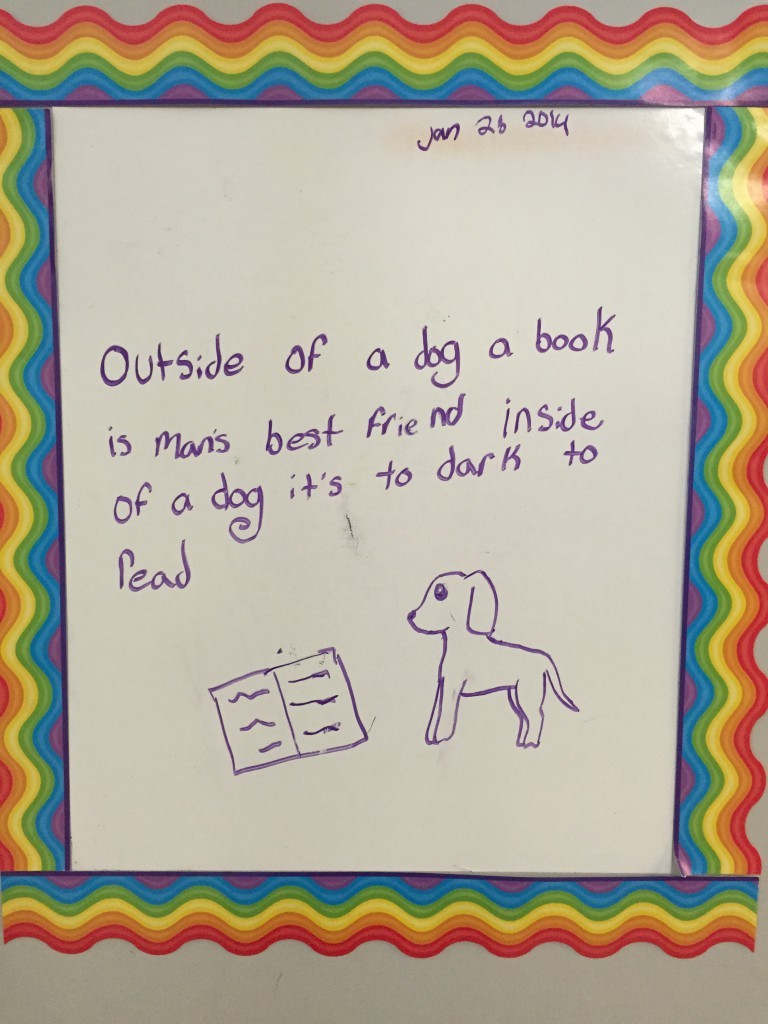 Jan 26 2014
Outside of a dog a book
is Man's best friend inside
of a dog it's to dark to
read